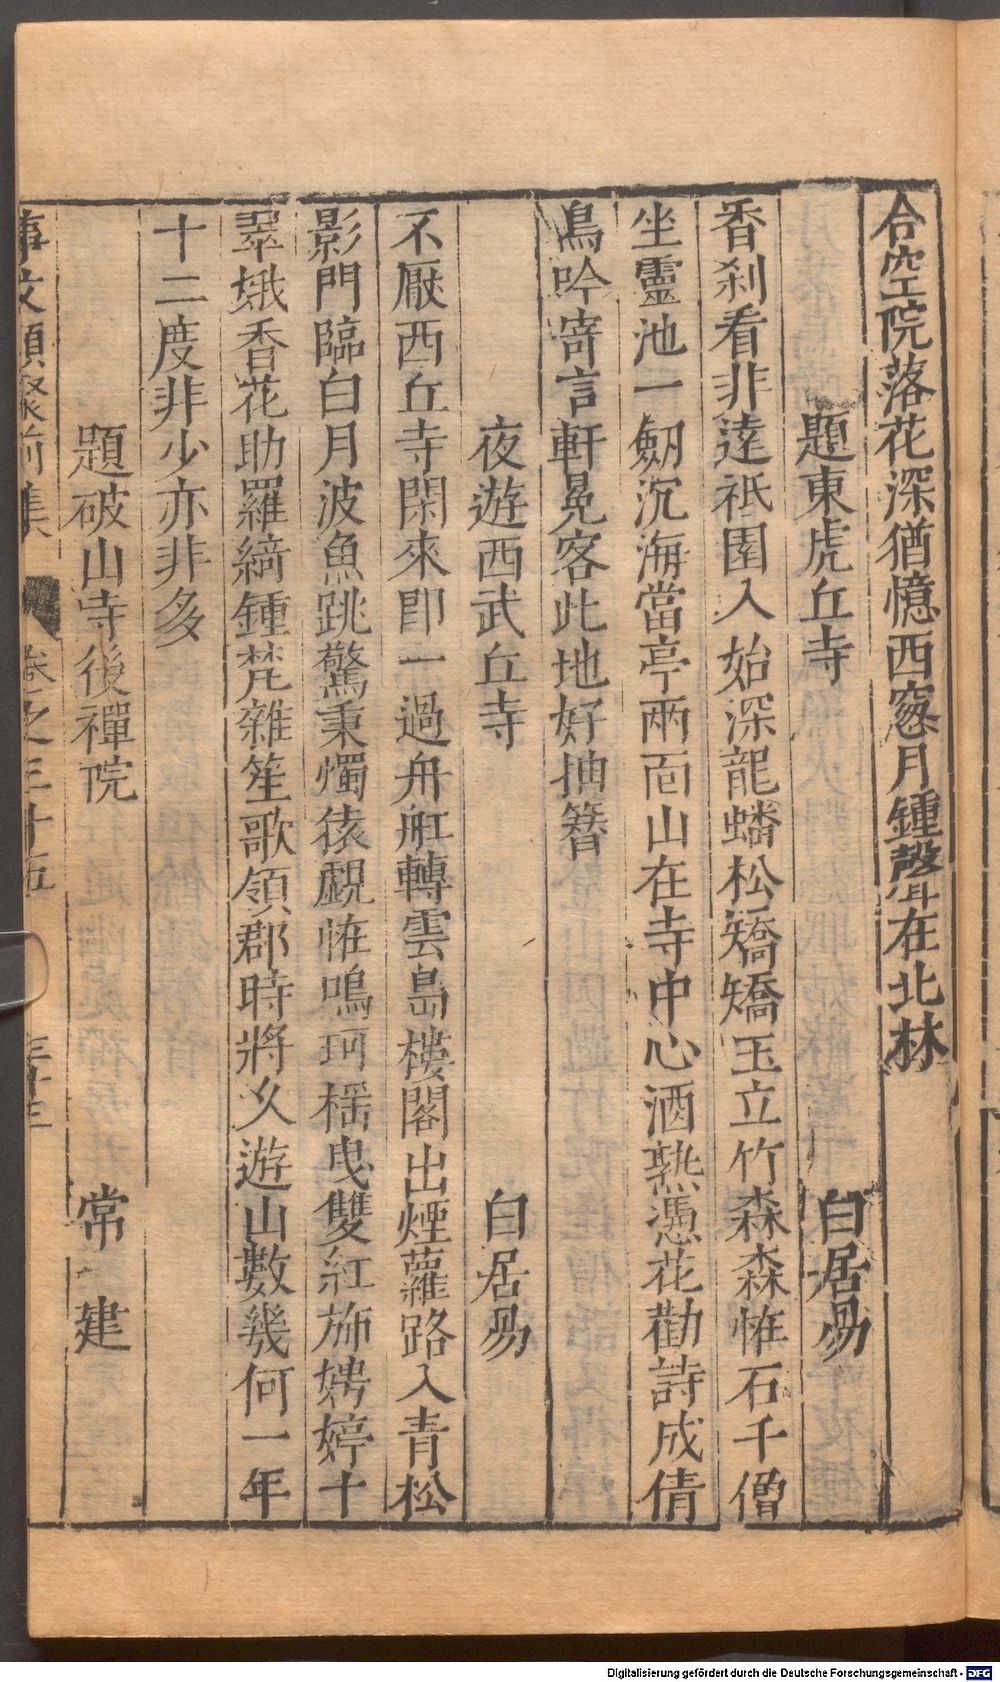 合空院落花深猶憶西窓月鍾聲在北林
題東虎丘寺 白居昜
香刹看非逺祇園入始深龍蟠松矯矯玉立竹森森恠石千僧
坐靈池一劒沉海當亭兩面山在寺中心酒熟憑花勸詩成倩
鳥吟寄言軒冕客此地好抽簪
夜遊西武丘寺 白居昜
不厭西丘寺閑來即一過舟舡轉雲島樓閣出煙蘿路入青松
影門臨白月波魚跳驚秉燭猿覷恠鳴珂揺曳雙紅斾娉婷十
翠娥香花助羅綺鍾梵雜笙歌領郡時將久遊山數幾何一年
十二度非少亦非多
題破山寺後禪院 常建
事文類聚前集 卷之三十五 三十三
Digitalisierung gefördert durch die Deutsche Forschungsgemeinschaft - DFG